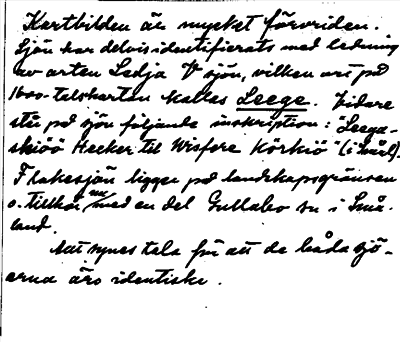 Kartbilden är mycket förvriden.
Sjön har delvis identifierats med ledning
av orten Ledja V sjön, vilken ort på
1600-talskartan kallas Leege. Vidare
står på sjön följande inskription: "Leega-
skiöö Hecker til Wisfore Körkiö" (i Smål).
Flakesjön ligger på landskapsgränsen
o. tillhör nu med en del Gullabo sn i Små-
land.
Allt synes tala för att de båda sjö-
arna äro identiska.